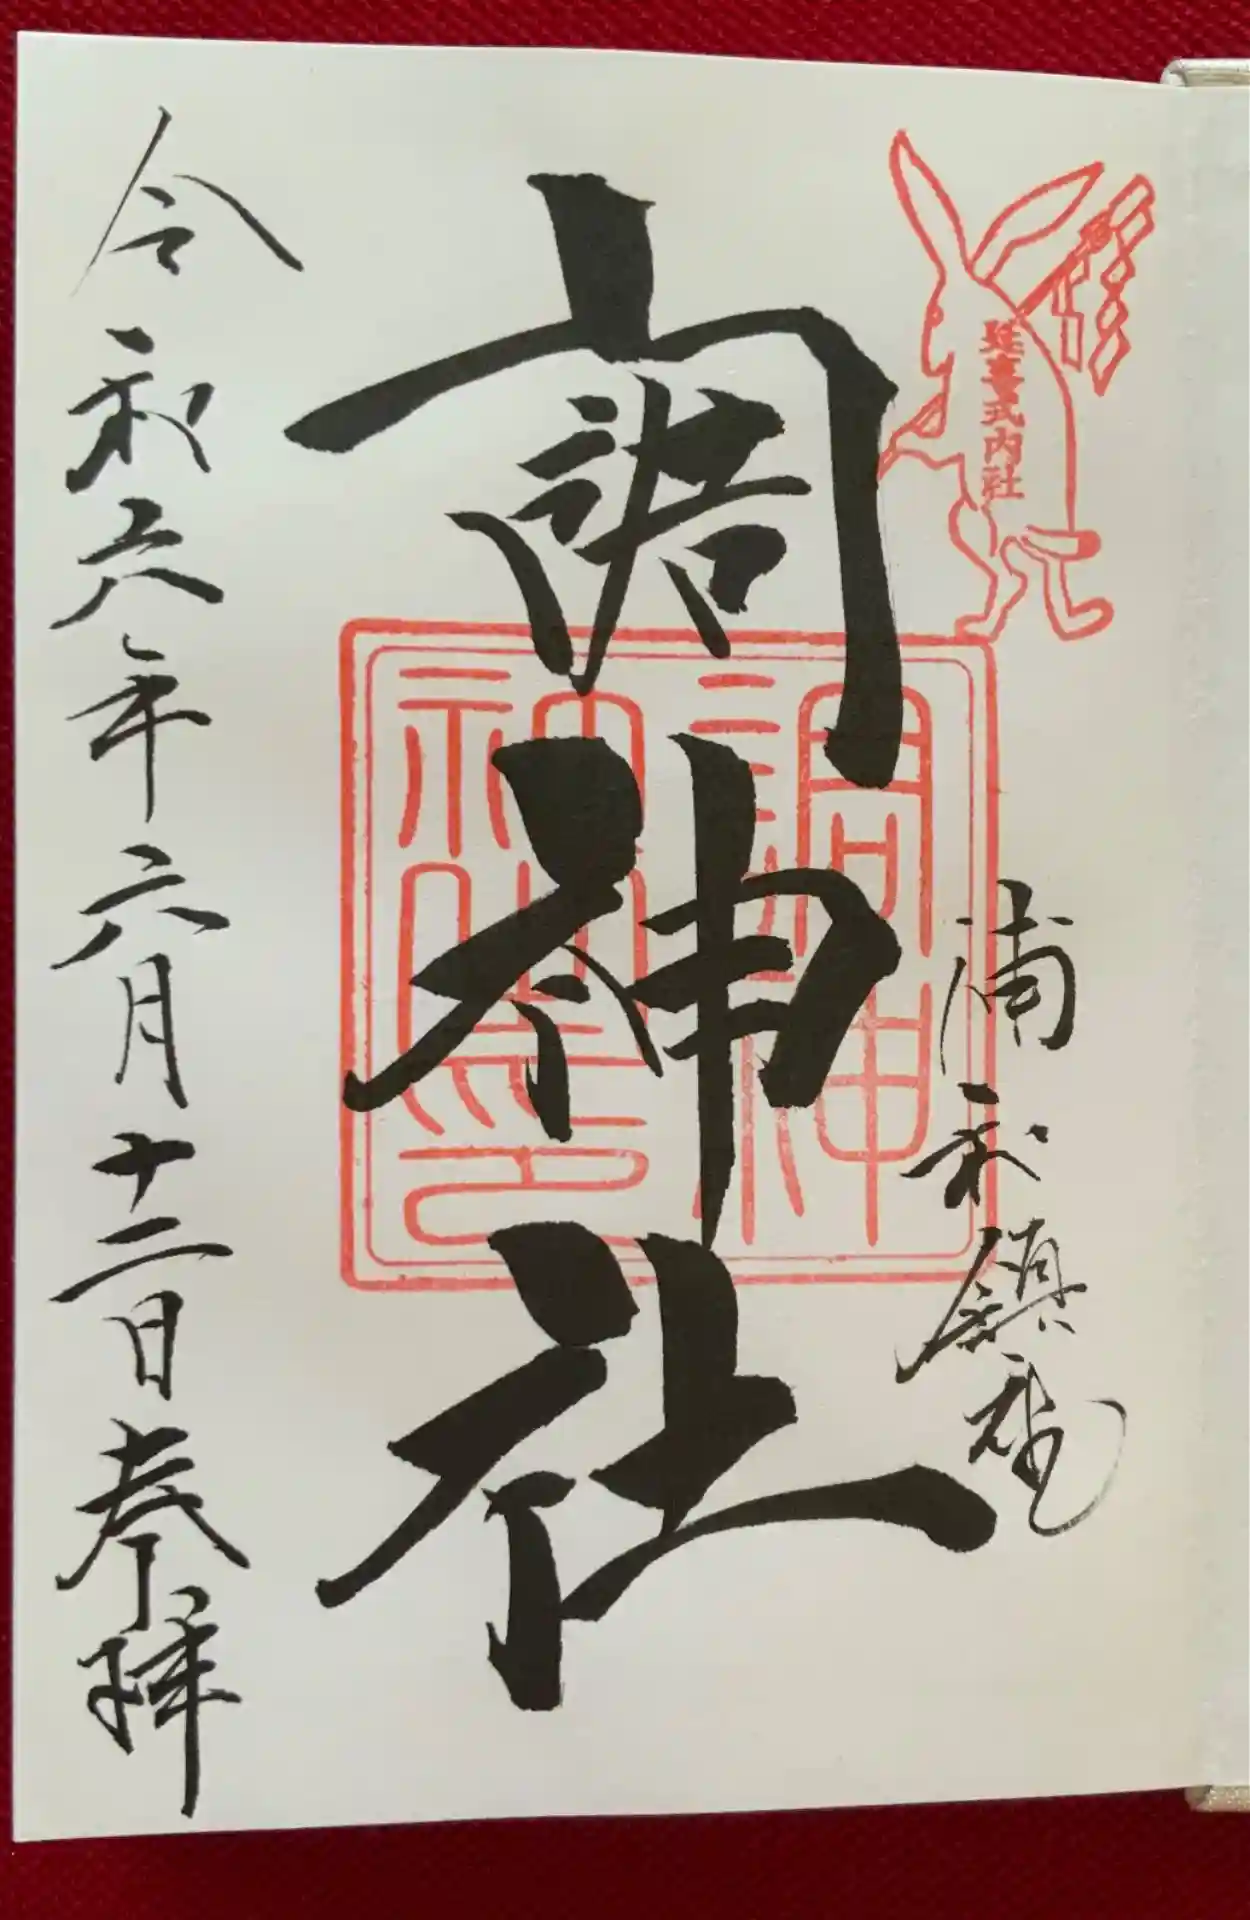 延喜式内社
浦和鎮座
調神社
調神
社印
令和六年六月十二日奉拝